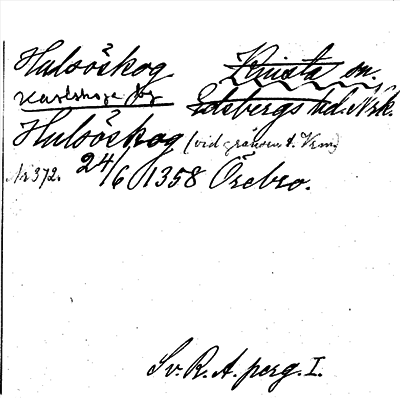 Hulsöskog Knista sn.
Karlskoga Edsbergs hd. Nrk.
Hulsöskog (vid gränsen t. Vrml)
Nr 372. 24/6 1358 Örebro.
Sv. R. A. perg. I.